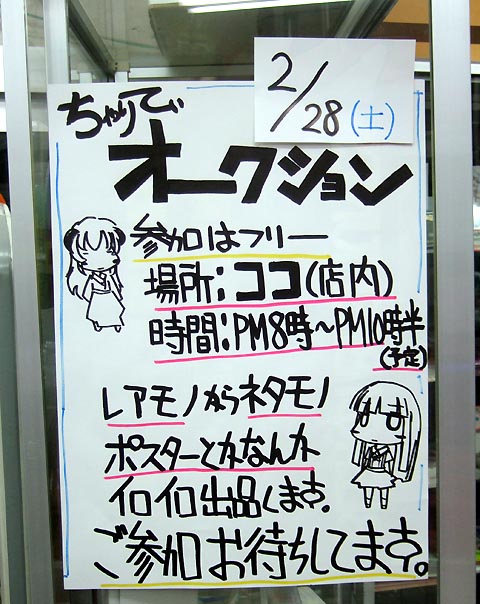 2/28(土)
ちゃりてぃ
オークション
参加はフリー
場所:ココ(店内)
時間:PM8時〜PM10時半
(予定)
レアモノからネタモノ
ポスターとかなんか
イロイロ出品します。
ご参加お待ちしてます。